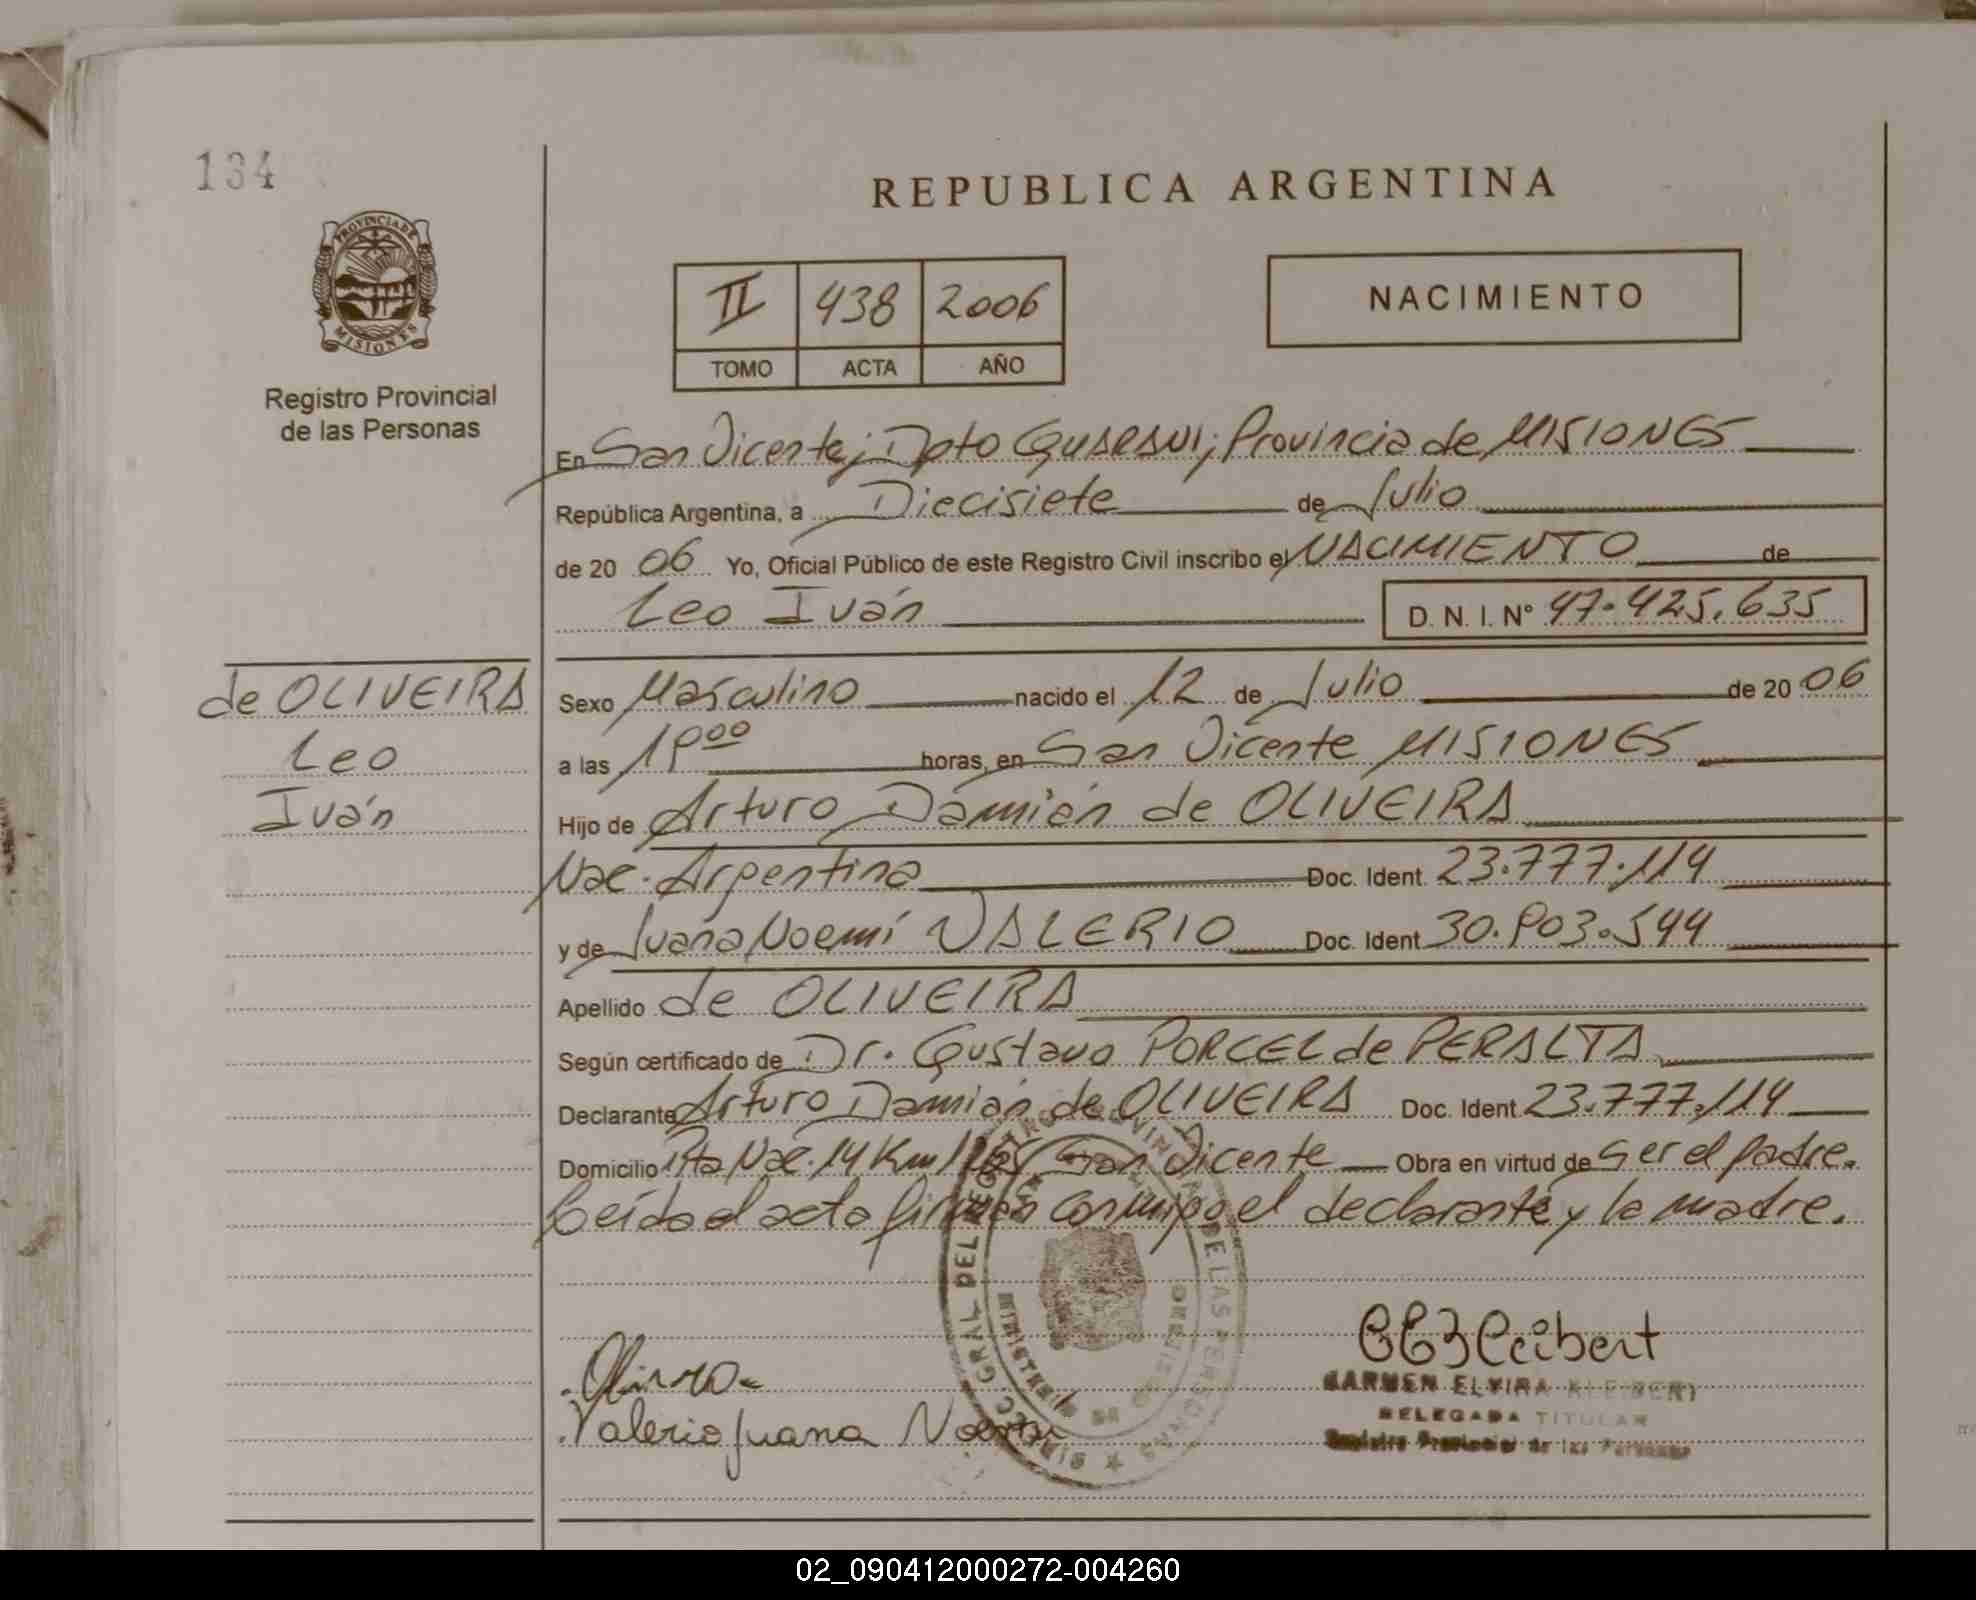 134
PROVINCIA DE
MISIONES
Registro Provincial
de las Personas
REPUBLICA ARGENTINA
II 438 2006
TOMO ACTA AÑO
NACIMIENTO
En San Vicente; Dpto Guaraní; Provincia de MISIONES
República Argentina, a Diecisiete de Julio
de 20 06 Yo, Oficial Público de este Registro Civil inscribo el NACIMIENTO de
Leo Iván D. N. I. N° 47.425.635
de OLIVEIRA
Leo
Iván
Sexo Masculino nacido el 12 de Julio de 20 06
a las horas, en San Vicente MISIONES
Hijo de Arturo Damián de OLIVEIRA
Nac. Argentina Doc. Ident. 23.777.114
y de Juana Noemí VALERIO Doc. Ident 30.903.544
Apellido de OLIVEIRA
Según certificado de Dr. Gustavo PORCEL de PERALTA
Declarante Arturo Damián de OLIVEIRA Doc. Ident 23.777.114
Domicilio Rta Nac. 14 Km San Vicente Obra en virtud de ser el padre.
Leída el acta firman conmigo el declarante y la madre.
Valerio Juana Noemi
CEKleibert
CARMEN ELVIRA KLEIBERT
DELEGADA TITULAR
Registro Provincial de las Personas
02_090412000272-004260